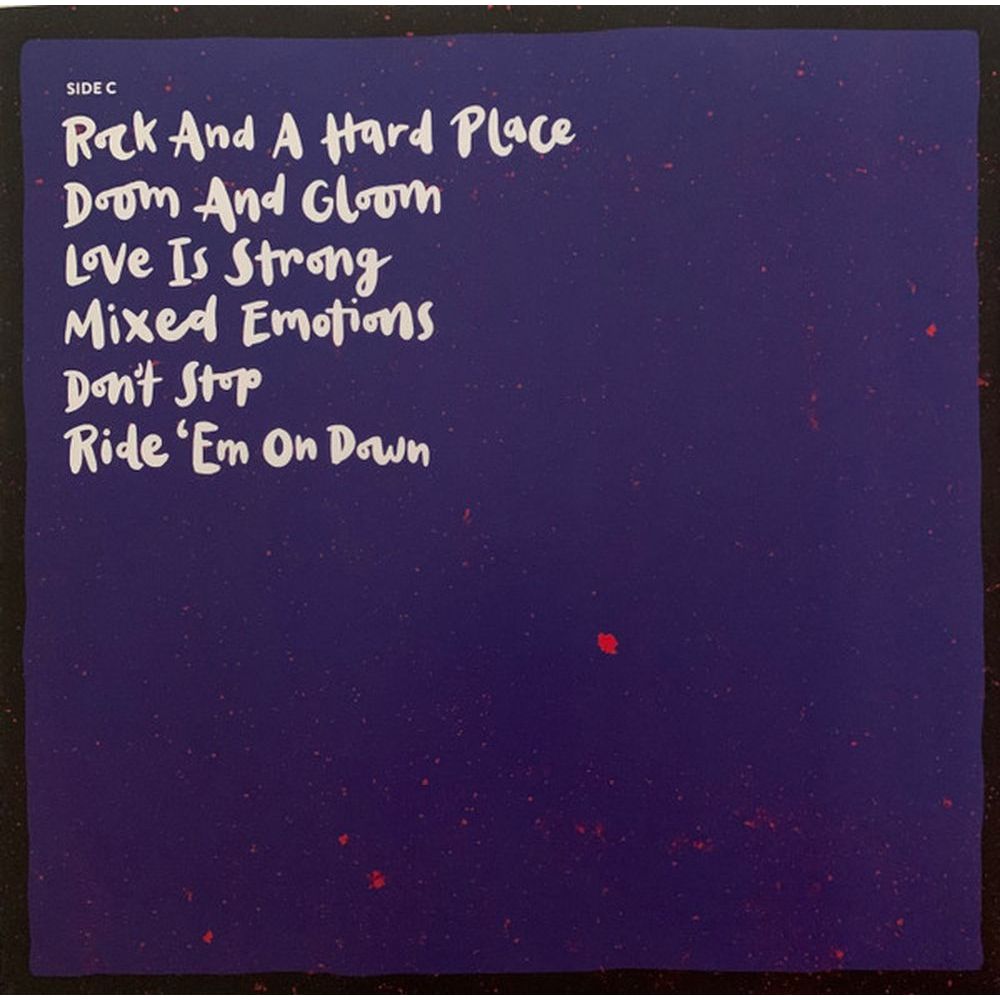 SIDE C
Rock And A Hard Place
Doom And Gloom
Love Is Strong
Mixed Emotions
Don't Stop
Ride 'Em On Down